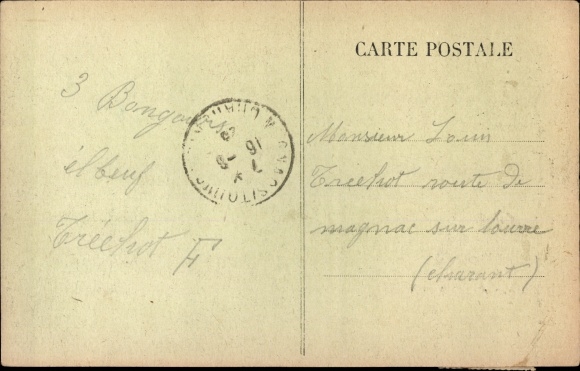 CARTE POSTALE
3 Bongours
élbeuf
Tréchot F
Monsieur Louis
Treehot route de
magnac sur touvre
(charant)